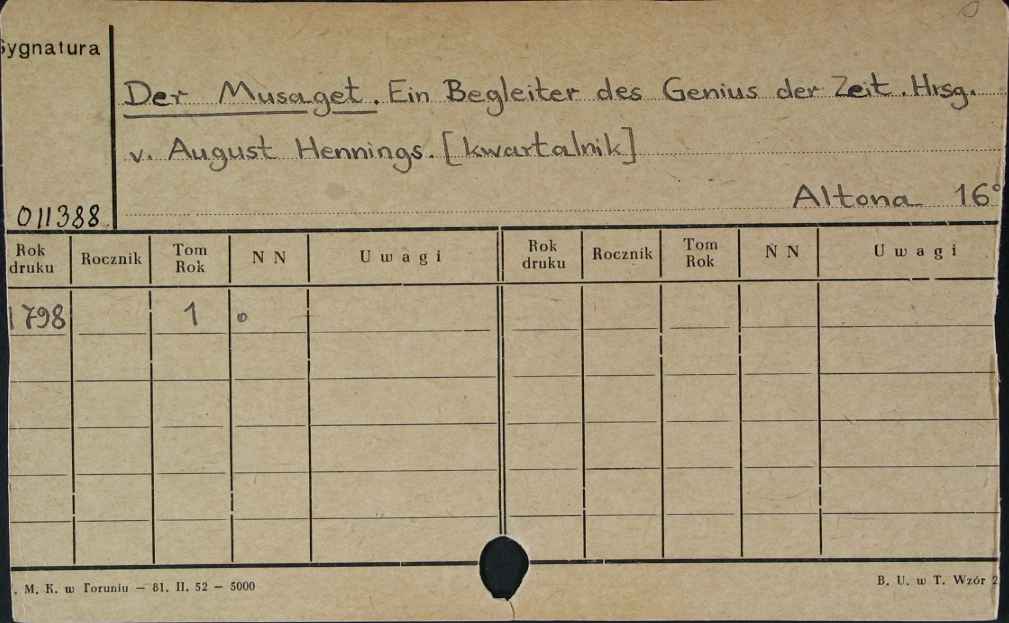 Sygnatura
Der Musaget. Ein Begleiter des Genius der Zeit. Hrsg.
v. August Hennings. [kwartalnik]
Altona 16°
011388
Rok druku Rocznik Tom Rok N N Uwagi Rok druku Rocznik Tom Rok N N Uwagi
1798 1 o
. M. K. w Toruniu — 81. II. 52 — 5000
B. U. w T. Wzór 2